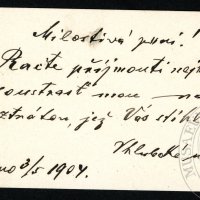 Milostivá paní!
Račte přijmouti nejh
soustrast mou na
ztrátou, jež Vás stihl
no 3/5 1904.